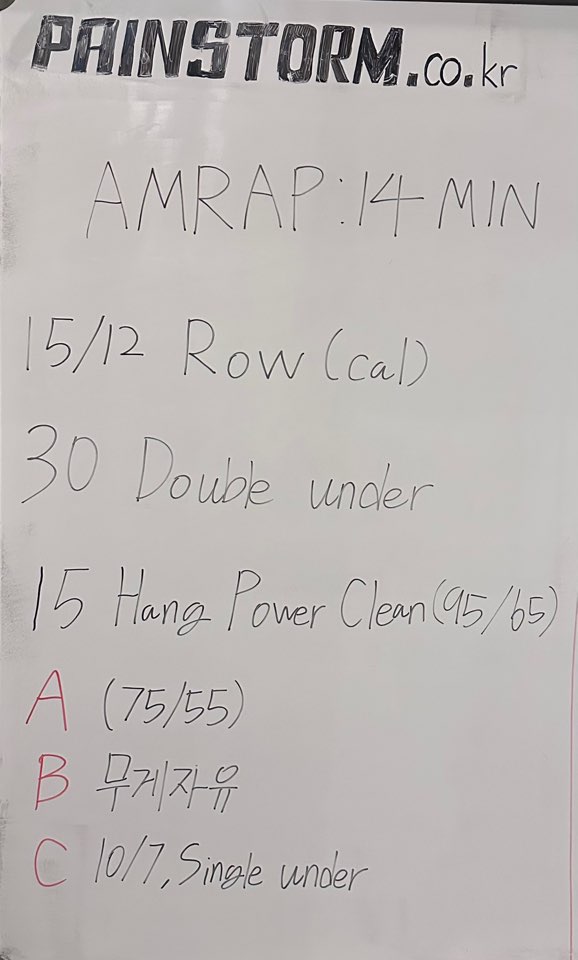 PAINSTORM.co.kr
AMRAP:14 MIN
15/12 Row (cal)
30 Double under
15 Hang Power Clean (95/65)
A (75/55)
B 무게자유
C 10/7, Single under